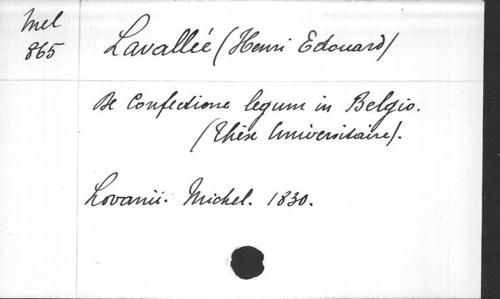 Mel
865
Lavallée (Henri Edouard)
De Confectione legum in Belgio.
(Thèse Universitaire).
Lovanii. Michel. 1830.